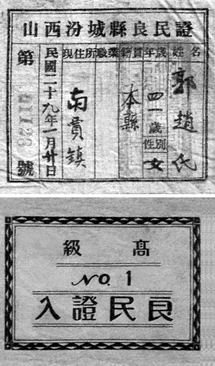 山西汾城縣良民證
姓名 郭趙氏
年歲 四一歲
性別 女
籍貫 本縣
職業
現住所 南貫鎮
民國二十九年一月廿日
第 號
高級
No. 1
良民證入